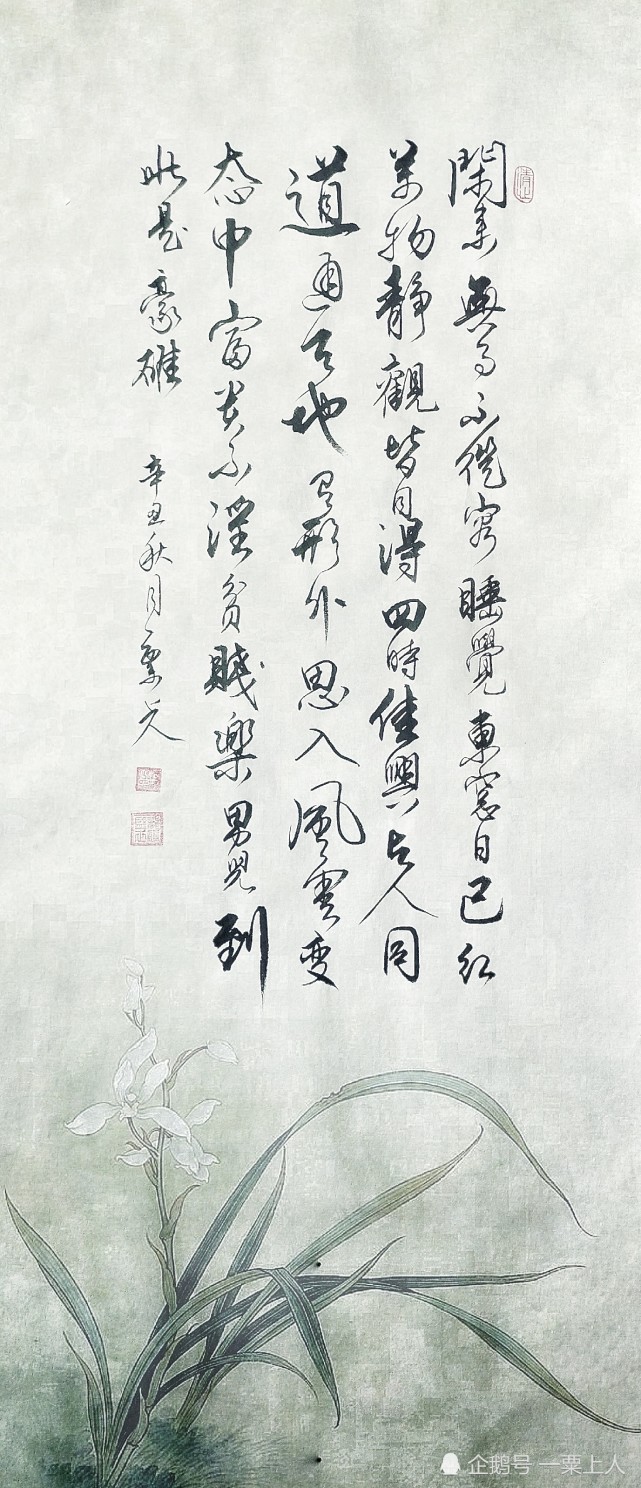 閑来無事不從容睡覺東窓日已红
萬物靜觀皆自得四時佳興与人同
道通天地有形外思入風雲变
态中富贵不淫貧賤樂男兒到
此是豪雄
辛丑秋月一粟上人
企鹅号 一粟上人